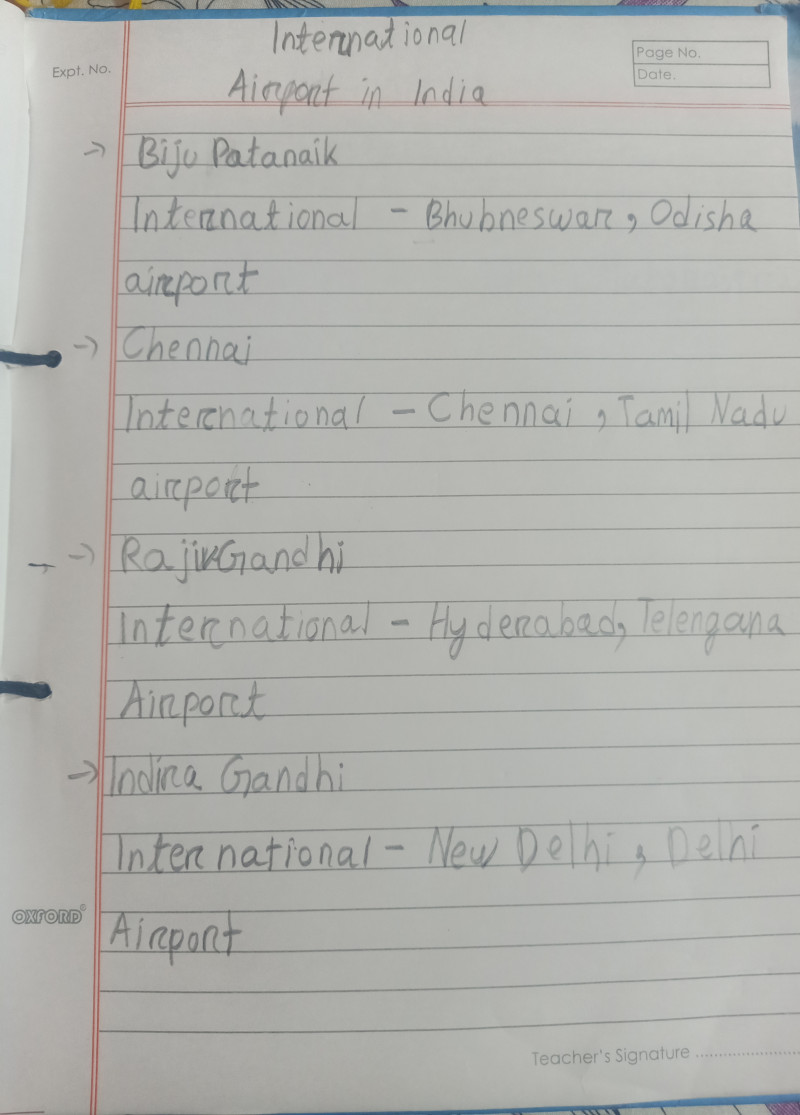 International
Expt. No.
Page No.
Airport in India
Date.
→ Biju Patanaik
International - Bhubneswar, Odisha
airport
→ Chennai
International - Chennai, Tamil Nadu
airport
→ → Rajiv Gandhi
International - Hyderabad, Telengana
Airport
→ Indira Gandhi
International - New Delhi, Delhi
OXFORD
Airport
Teacher's Signature ....................